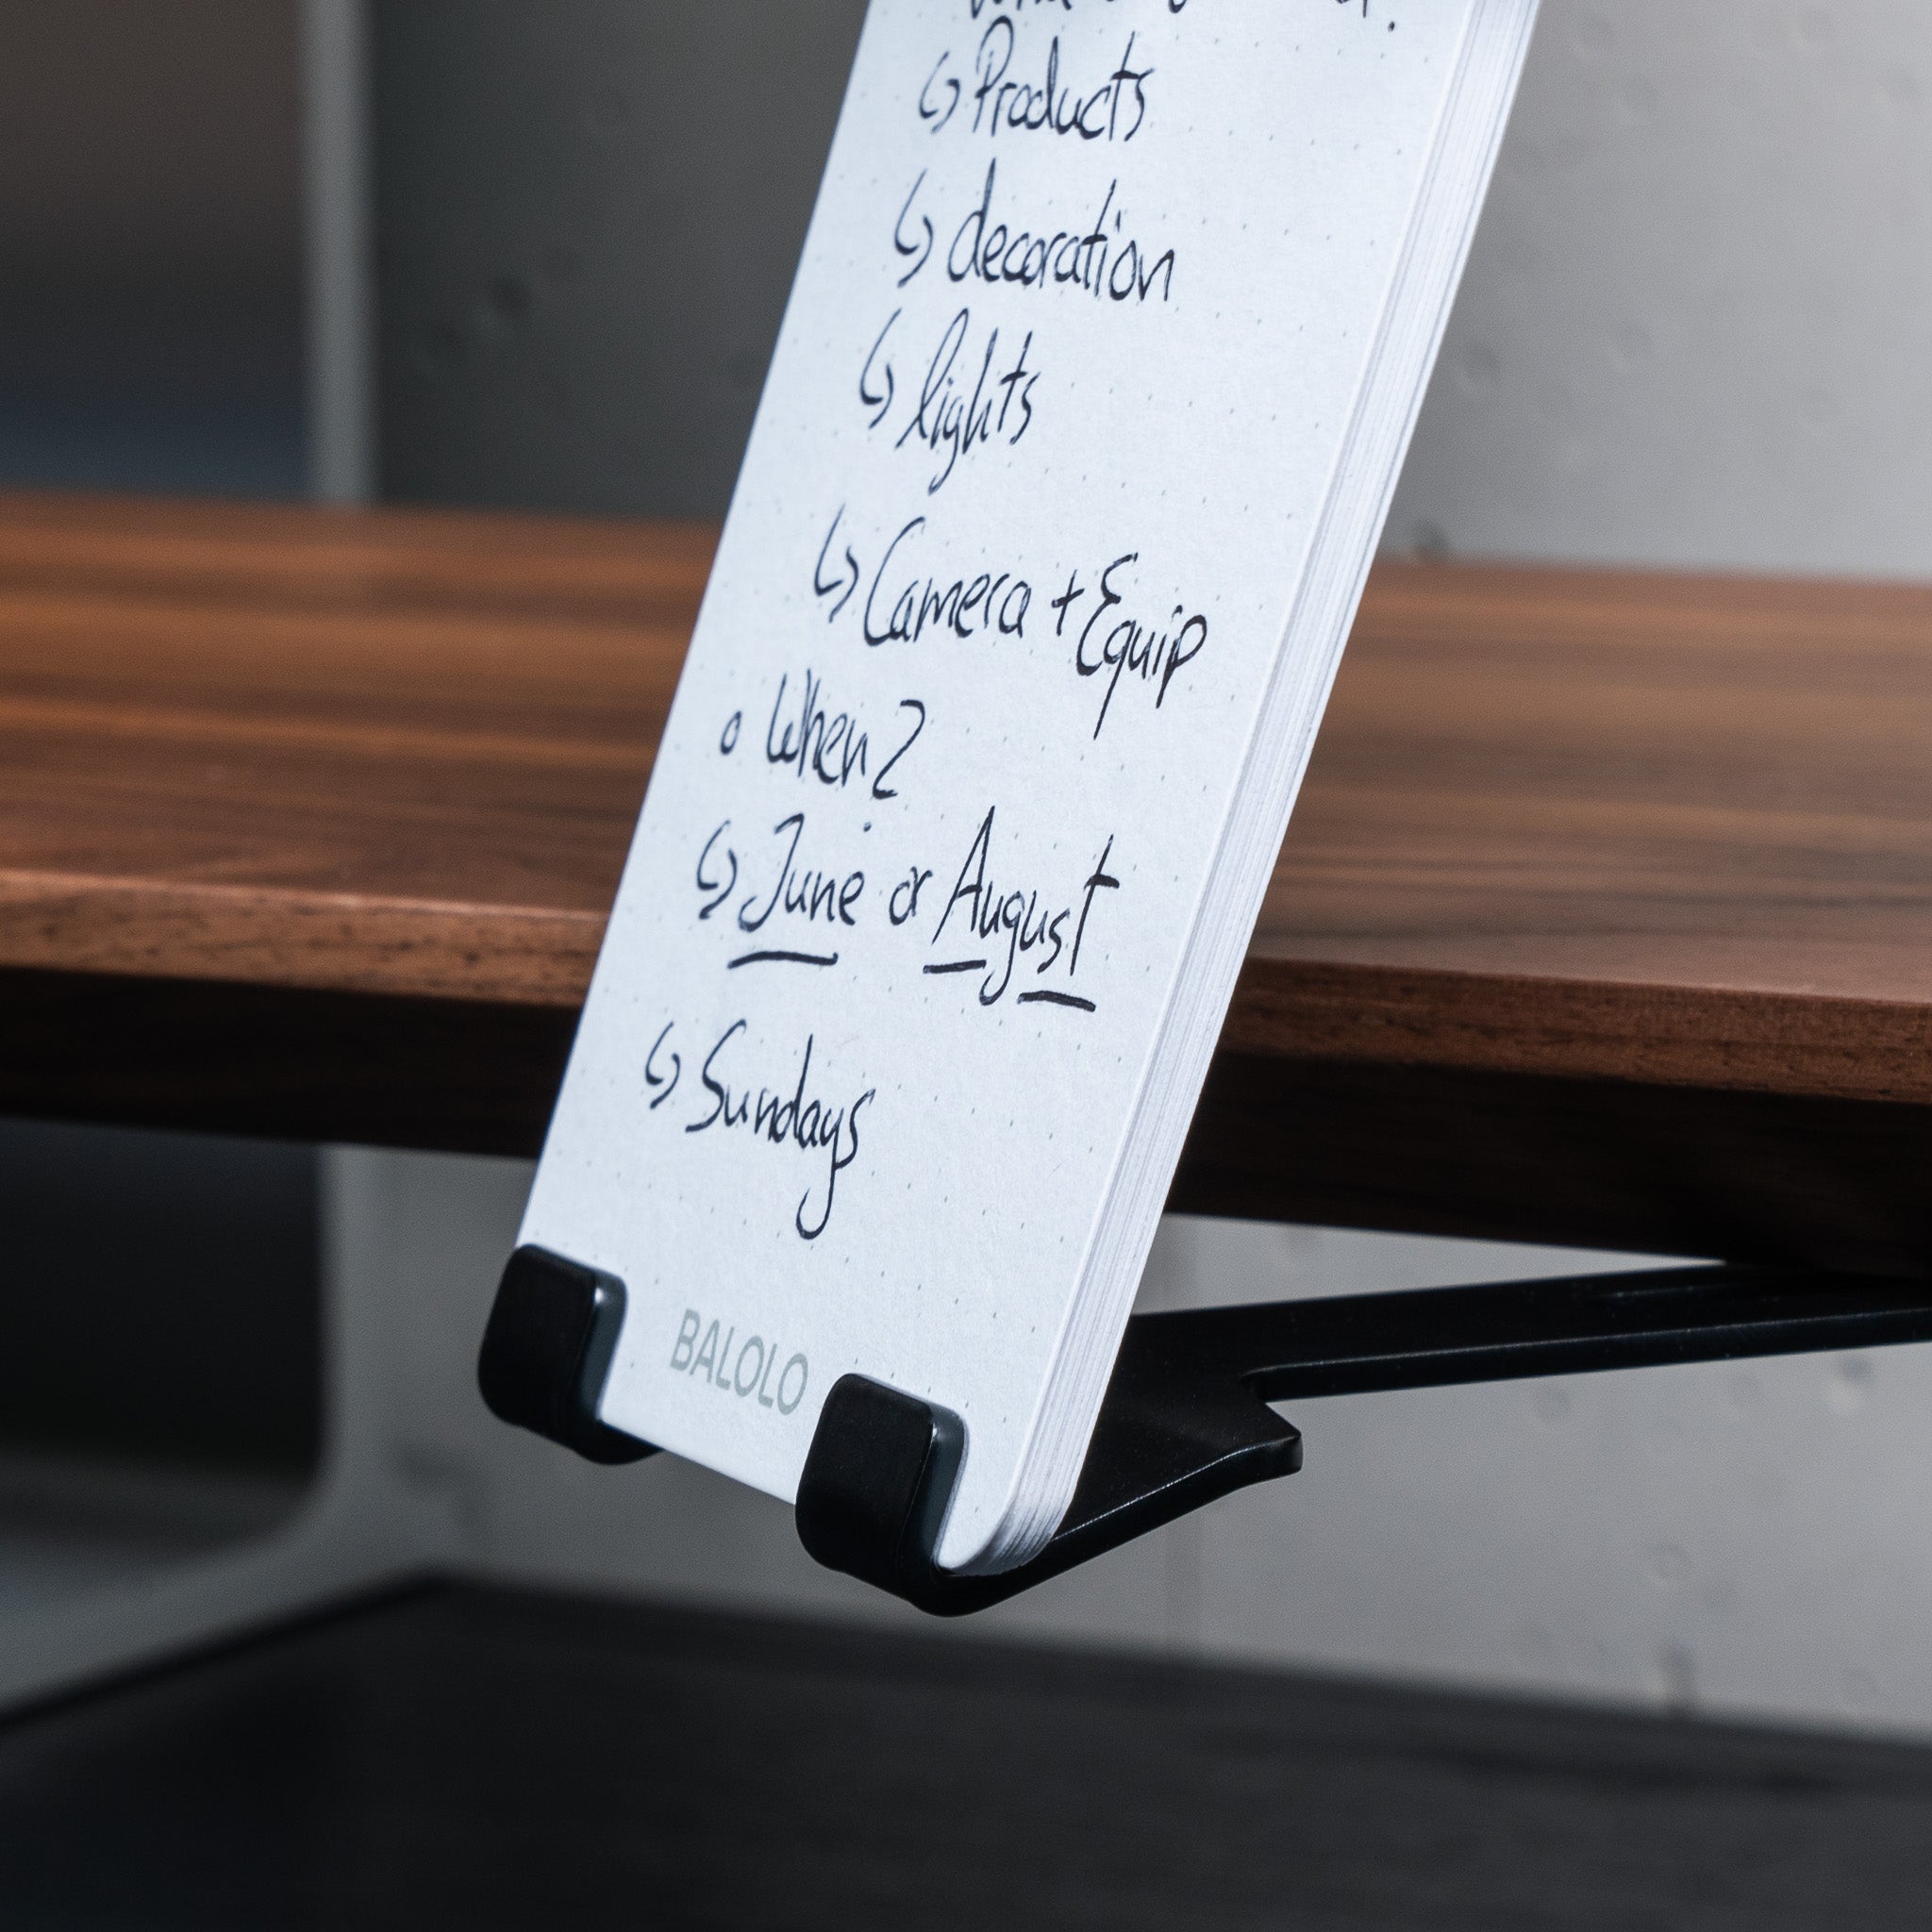 ↳ Products
↳ decoration
↳ lights
↳ Camera + Equip
o When?
↳ June or August
↳ Sundays
BALOLO